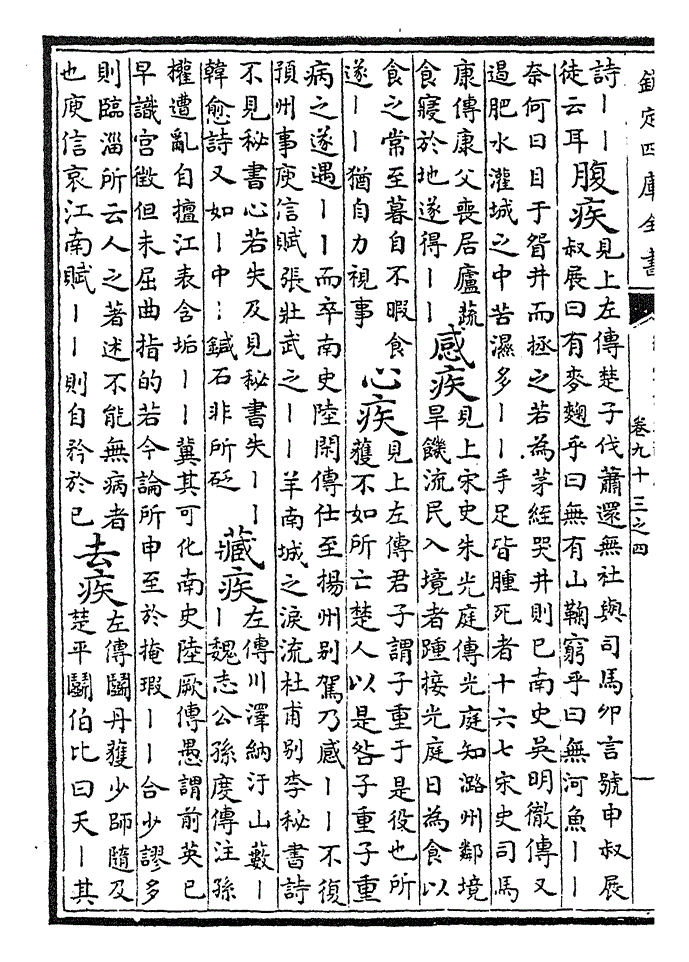 欽定四庫全書
卷九十三之四
詩丨丨
徒云耳
腹疾
見上左傳楚子伐蕭還無社與司馬卯言號申叔展
叔展曰有麥麴乎曰無有山鞠窮乎曰無河魚丨丨
奈何曰目于眢井而拯之若為茅絰哭井則已南史吳明徹傳又
過肥水灌城之中苦濕多丨丨手足皆腫死者十六七宋史司馬
康傳康父喪居廬蔬
食寢於地遂得丨丨
感疾
見上宋史朱光庭傳光庭知潞州鄰境
旱饑流民入境者踵接光庭日為食以
食之常至暮自不暇食
遂丨丨猶自力視事
心疾
見上左傳君子謂子重于是役也所
獲不如所亡楚人以是咎子重子重
病之遂遇丨丨而卒南史陸閑傳仕至揚州别駕乃感丨丨不復
預州事庾信賦張壯武之丨丨羊南城之淚流杜甫别李秘書詩
不見秘書心若失及見秘書失丨丨
韓愈詩又如丨中丨鍼石非所砭
藏疾
左傳川澤納汙山藪丨
丨魏志公孫度傳注孫
權遭亂自擅江表含垢丨丨冀其可化南史陸厥傳愚謂前英已
早識宫徵但未屈曲指的若今論所申至於掩瑕丨丨合少謬多
則臨淄所云人之著述不能無病者
也庾信哀江南賦丨丨則自矜於已
去疾
左傳鬬丹獲少師隨及
楚平鬬伯比曰天丨其